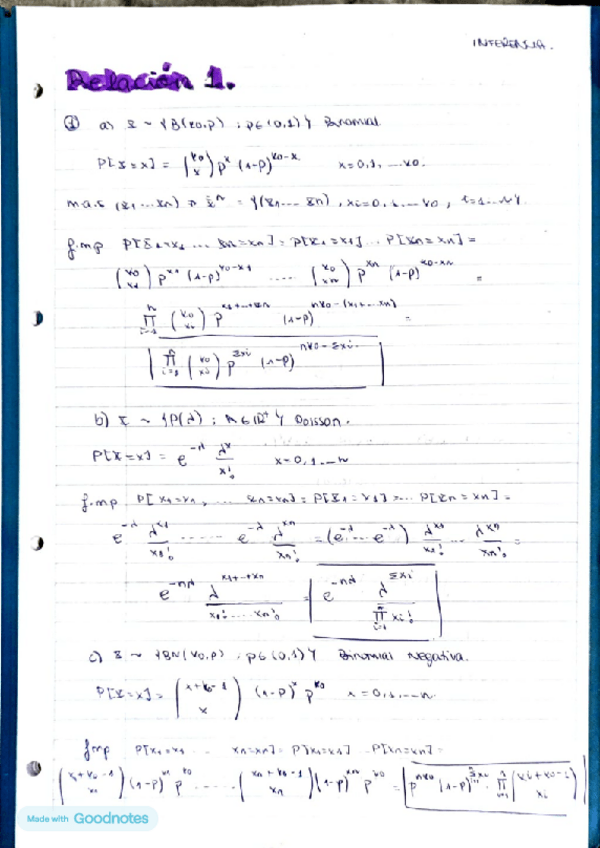 INFERENCIA.
Relación 1.
① a) X ~ {B(k0,p) : p∈(0,1)} Binomial
P[X=x] = (k0 x) p^x (1-p)^{k0-x} x=0,1,...k0.
m.a.s (X1...Xn) → X^n = {(x1...xn), xi=0,1...k0, i=1...n}
f.m.p P[X1=x1 ... Xn=xn] = P[X1=x1] ... P[Xn=xn] =
(k0 x1) p^{x1} (1-p)^{k0-x1} ..... (k0 xn) p^{xn} (1-p)^{k0-xn} =
∏_{i=1}^n (k0 xi) p^{x1+...+xn} (1-p)^{nk0-(x1+...xn)} =
∏_{i=1}^n (k0 xi) p^{Σxi} (1-p)^{nk0-Σxi}
b) X ~ {P(λ) : λ∈R^+} Poisson.
P[X=x] = e^{-λ} λ^x/x! x=0,1...n
f.m.p P[X1=x1, ... Xn=xn] = P[X1=x1] ... P[Xn=xn] =
e^{-λ} λ^{x1}/x1! ..... e^{-λ} λ^{xn}/xn! = (e^{-λ}...e^{-λ}) λ^{x1}/x1! ... λ^{xn}/xn! =
e^{-nλ} λ^{x1+...+xn}/x1!.....xn! = e^{-nλ} λ^{Σxi}/∏_{i=1}^n xi!
c) X ~ {BN(k0,p) : p∈(0,1)} Binomial Negativa.
P[X=x] = (x+k0-1 x) (1-p)^x p^{k0} x=0,1,...n.
f.m.p P[X1=x1 ... Xn=xn] = P[X1=x1] ..P[Xn=xn] =
(x1+k0-1 x1) (1-p)^{x1} p^{k0} ..... (xn+k0-1 xn) (1-p)^{xn} p^{k0} = p^{nk0} (1-p)^{Σxi} · ∏_{i=1}^n (xi+k0-1 xi)
Made with Goodnotes